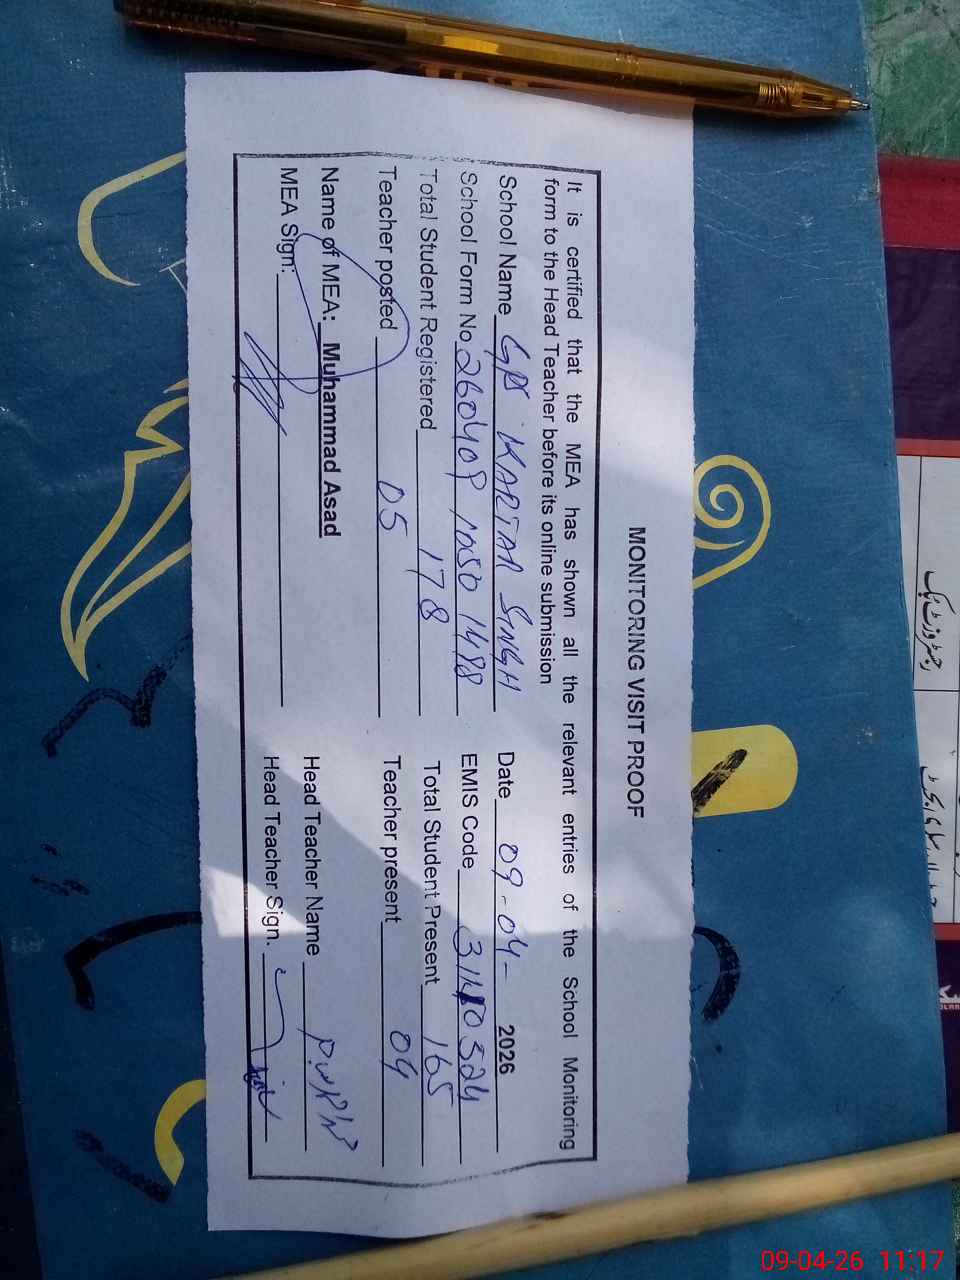 MONITORING VISIT PROOF
It is certified that the MEA has shown all the relevant entries of the School Monitoring
form to the Head Teacher before its online submission
School Name GPS KARTAR SINGH Date 09-04- 2026
School Form No 260409 1050 1488 EMIS Code
Total Student Registered 178 Total Student Present 165
Teacher posted 05 Teacher present 04
Name of MEA: Muhammad Asad Head Teacher Name
MEA Sign: Head Teacher Sign.
رجسٹر وزٹ بک
09-04-26 11:17